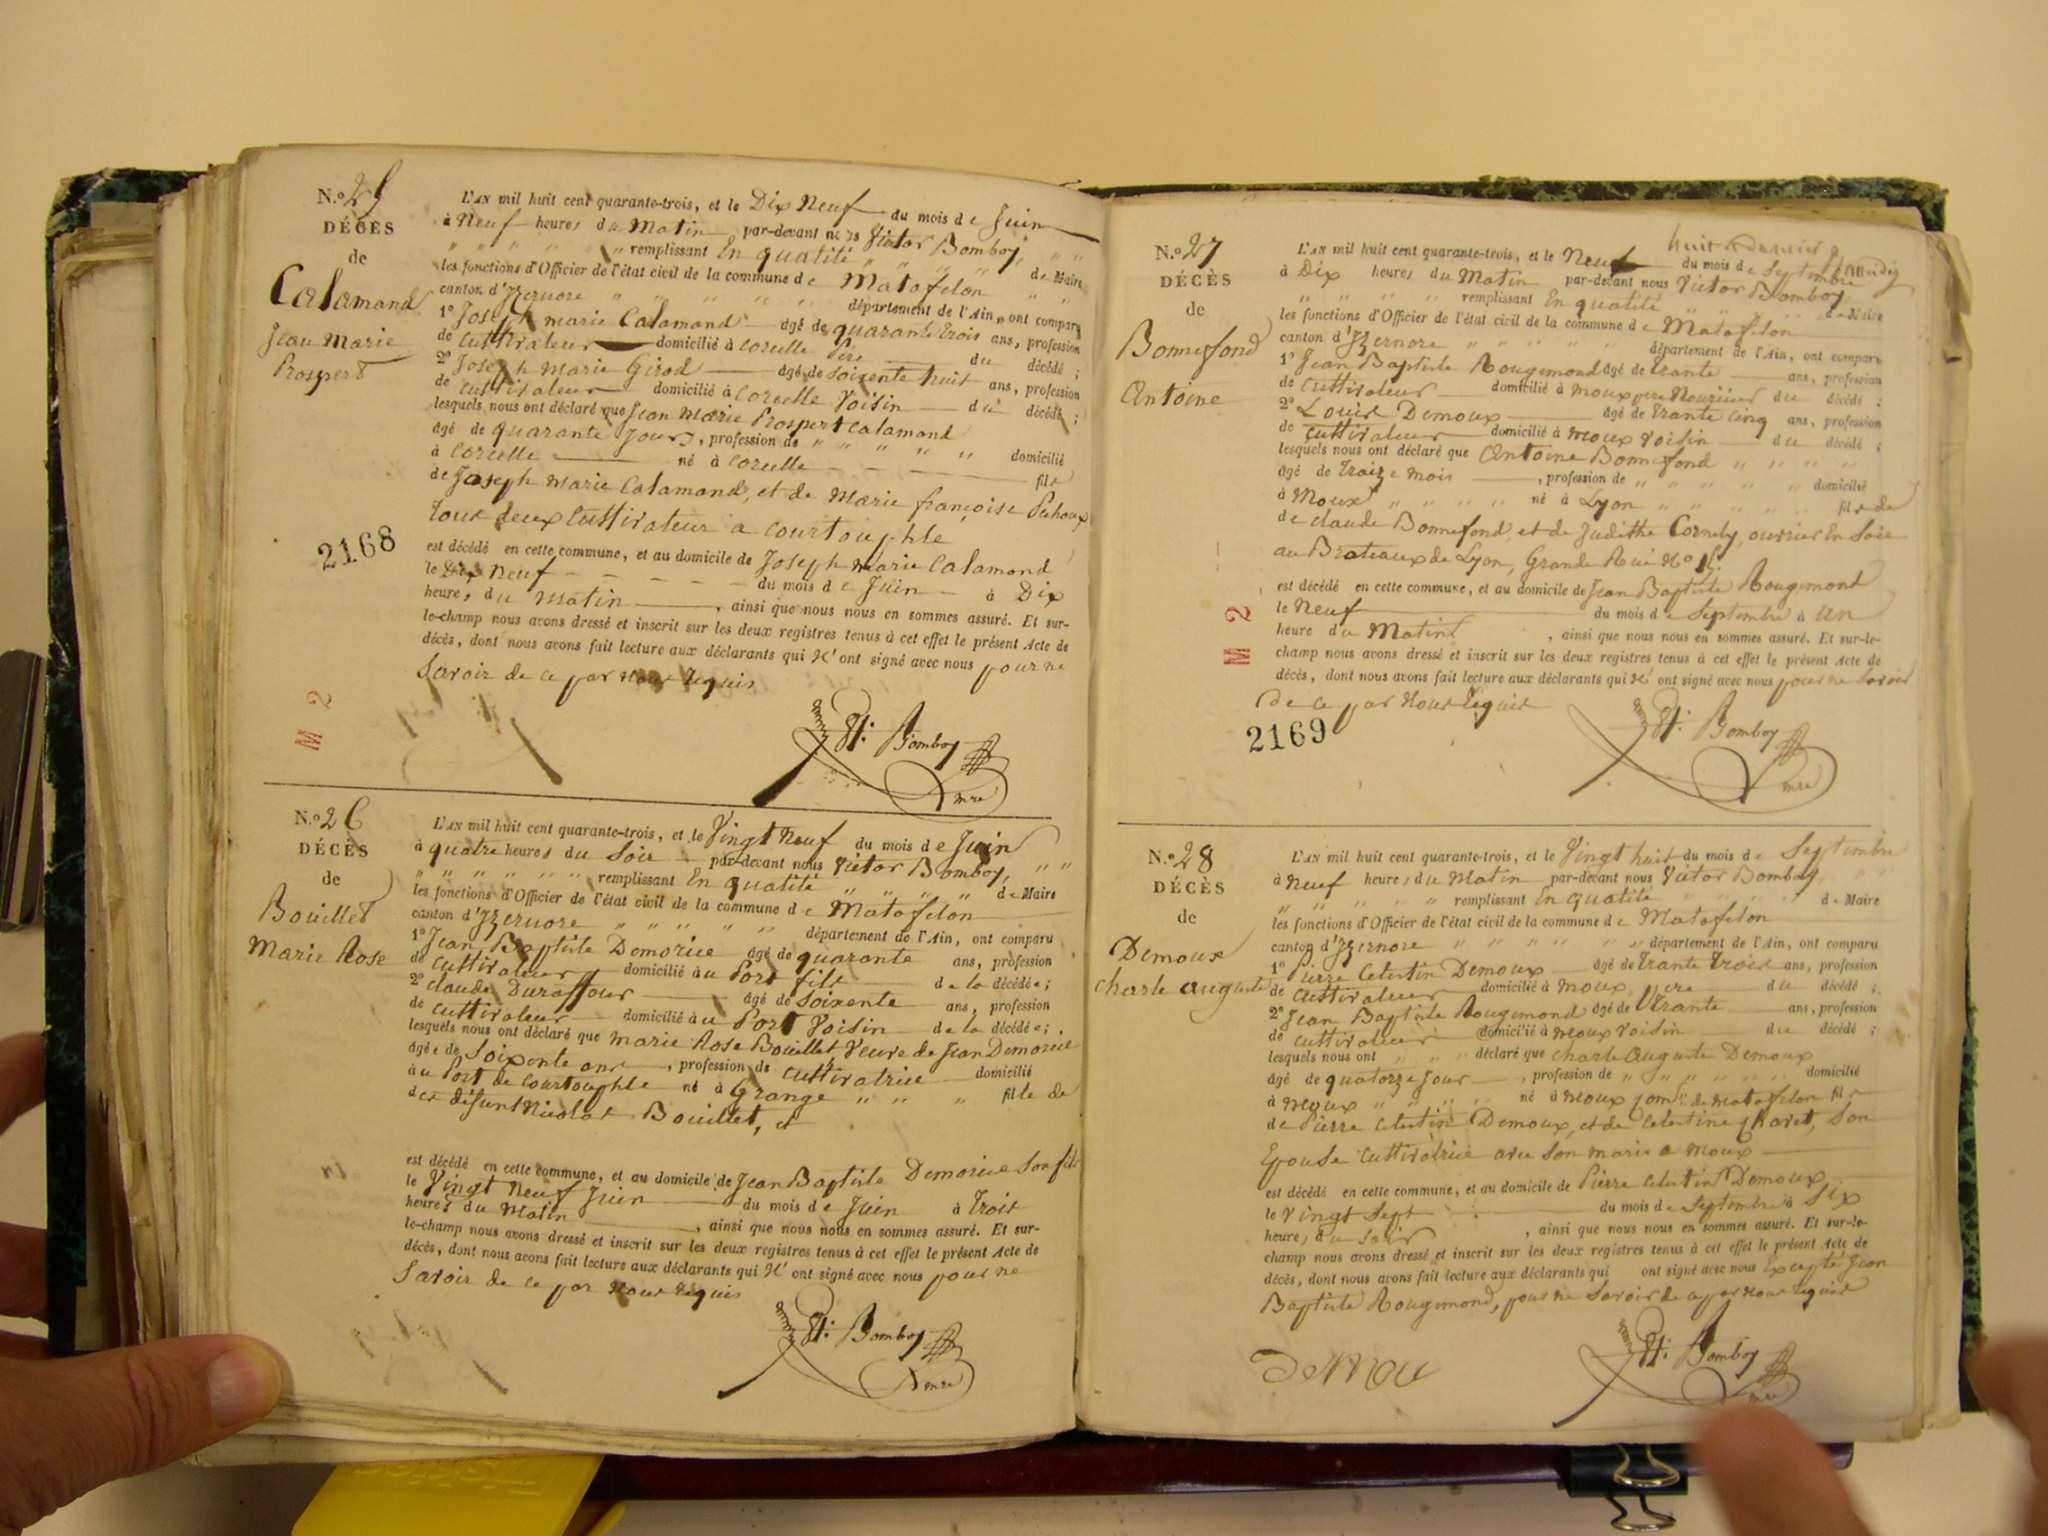 N.o 25
DÉCÈS
de
Calamand
Jean Marie
Prospert
L'AN mil huit cent quarante-trois, et le Dix Neuf du mois de Juin
à Neuf heures du Matin par-devant nous Victor Bomboy,
" " " " " remplissant En qualité " " " " de Maire
les fonctions d'Officier de l'état civil de la commune de Matafelon
canton d'Izernore " " " " " département de l'Ain, ont comparu
1o Joseph marie Calamand âgé de quarante trois ans, profession
de Cultivateur domicilié à Corcelle Père du décédé ;
2o Joseph Marie Girod âgé de soixente huit ans, profession
de Cultivateur domicilié à Corcelle Voisin du décédé ;
lesquels nous ont déclaré que Jean Marie Prospert Calamand
âgé de quarante Jours, profession de " " " " " domicilié
à Corcelle né à Corcelle - - - - fils
de Joseph Marie Calamand, et de Marie françoise
Tous deux Cultivateur a Courtouphle
2168
est décédé en cette commune, et au domicile de Joseph Marie Calamand
le Dix Neuf - - - - - du mois de Juin - à Dix
heures du Matin, ainsi que nous nous en sommes assuré. Et sur-
le-champ nous avons dressé et inscrit sur les deux registres tenus à cet effet le présent Acte de
décès, dont nous avons fait lecture aux déclarants qui N' ont signé avec nous pour ne
Savoir de ce par Nous Requis
M 2
Vt: Bomboy
mre
N.o 26
DÉCÈS
de
Bouillet
Marie Rose
L'AN mil huit cent quarante-trois, et le Vingt Neuf du mois de Juin
à quatre heures du Soir par-devant nous Victor Bomboy, " "
" " " " " " remplissant En qualité " " " " de Maire
les fonctions d'Officier de l'état civil de la commune de Matafelon
canton d'Izernore " " " " " département de l'Ain, ont comparu
1o Jean Baptiste Demorice âgé de quarante ans, profession
de Cultivateur domicilié au Port fils de la décédée ;
2o Claude Duraffour âgé de Soixente ans, profession
de Cultivateur domicilié au Port Voisin de la décédée ;
lesquels nous ont déclaré que Marie Rose Bouillet Veuve de Jean Demorice
âgée de Soixente ans, profession de Cultivatrice domicilié
au Port de Courtouphle né à Grange " " " fille de
des défunt Nicolas Bouillet, et
est décédé en cette commune, et au domicile de Jean Baptiste Demorice Son fils
le Vingt Neuf Juin du mois de Juin à Trois
heures du Matin, ainsi que nous nous en sommes assuré. Et sur-
le-champ nous avons dressé et inscrit sur les deux registres tenus à cet effet le présent Acte de
décès, dont nous avons fait lecture aux déclarants qui N' ont signé avec nous pour ne
Savoir de ce par Nous Requis
Vt: Bomboy
mre
N.o 27
DÉCÈS
de
Bonnefond
Antoine
L'AN mil huit cent quarante-trois, et le Neuf du mois de Septembre
à Dix heures du Matin par-devant nous Victor Bomboy
" " " " remplissant En qualité de Maire
les fonctions d'Officier de l'état civil de la commune de Matafelon
canton d'Izernore " " " " " département de l'Ain, ont comparu
1o Jean Baptiste Rougemond âgé de trante ans, profession
de Cultivateur domicilié à Moux père Nouricier du décédé ;
2o Louis Demoux âgé de trante cinq ans, profession
de Cultivateur domicilié à Moux Voisin du décédé ;
lesquels nous ont déclaré que Antoine Bonnefond " " " "
âgé de traize mois, profession de " " " " " domicilié
à Moux " " " " " né à Lyon " " " " " fils de
de Claude Bonnefond, et de Judithe Cornely, ouvrier En Soie
au Broteaux de Lyon, Grande Rue No
est décédé en cette commune, et au domicile de Jean Baptiste Rougemond
le Neuf du mois de Septembre à Un
heure du Matin, ainsi que nous nous en sommes assuré. Et sur-le-
champ nous avons dressé et inscrit sur les deux registres tenus à cet effet le présent Acte de
décès, dont nous avons fait lecture aux déclarants qui N' ont signé avec nous pour ne Savoir
de ce par Nous Requis
M 2
2169
Vt: Bomboy
mre
N.o 28
DÉCÈS
de
Demoux
Charle Auguste
L'AN mil huit cent quarante-trois, et le Vingt huit du mois de Septembre
à Neuf heures du Matin par-devant nous Victor Bomboy
" " " " " remplissant En qualité de Maire
les fonctions d'Officier de l'état civil de la commune de Matafelon
canton d'Izernore " " " " " " département de l'Ain, ont comparu
1o Pierre Celestin Demoux âgé de trante trois ans, profession
de Cultivateur domicilié à Moux, père du décédé ;
2o Jean Baptiste Rougemond âgé de trante ans, profession
de Cultivateur domicilié à Moux voisin du décédé ;
lesquels nous ont " " " déclaré que Charle Auguste Demoux
âgé de quatorze Jour, profession de " " " " " " domicilié
à Moux " " " " " né à Moux com.e de Matafelon fils
de Pierre Celestin Demoux, et de Celestine Son
Epouse Cultivatrice avec Son mari a Moux
est décédé en cette commune, et au domicile de Pierre Celestin Demoux
le Vingt Sept du mois de Septembre à Six
heures du Soir, ainsi que nous nous en sommes assuré. Et sur-le-
champ nous avons dressé et inscrit sur les deux registres tenus à cet effet le présent Acte de
décès, dont nous avons fait lecture aux déclarants qui ont signé avec nous Excepté Jean
Baptiste Rougemond, pour ne Savoir de ce par Nous Requis
Demou
Vt: Bomboy
mre